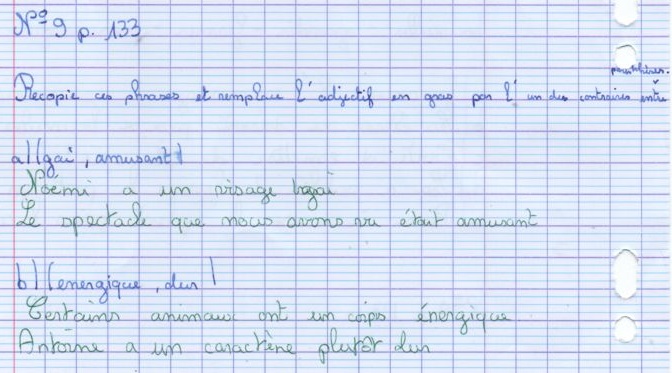 N° 9 p. 133
parenthèses.
Recopie ces phrases et remplace l'adjectif en gras par l'un des contraires entre
a) (gai, amusant)
Noémi a un visage gai
Le spectacle que nous avons vu était amusant
b) (energique, dur)
Certains animaux ont un corps énergique
Antoine a un caractère plutôt dur